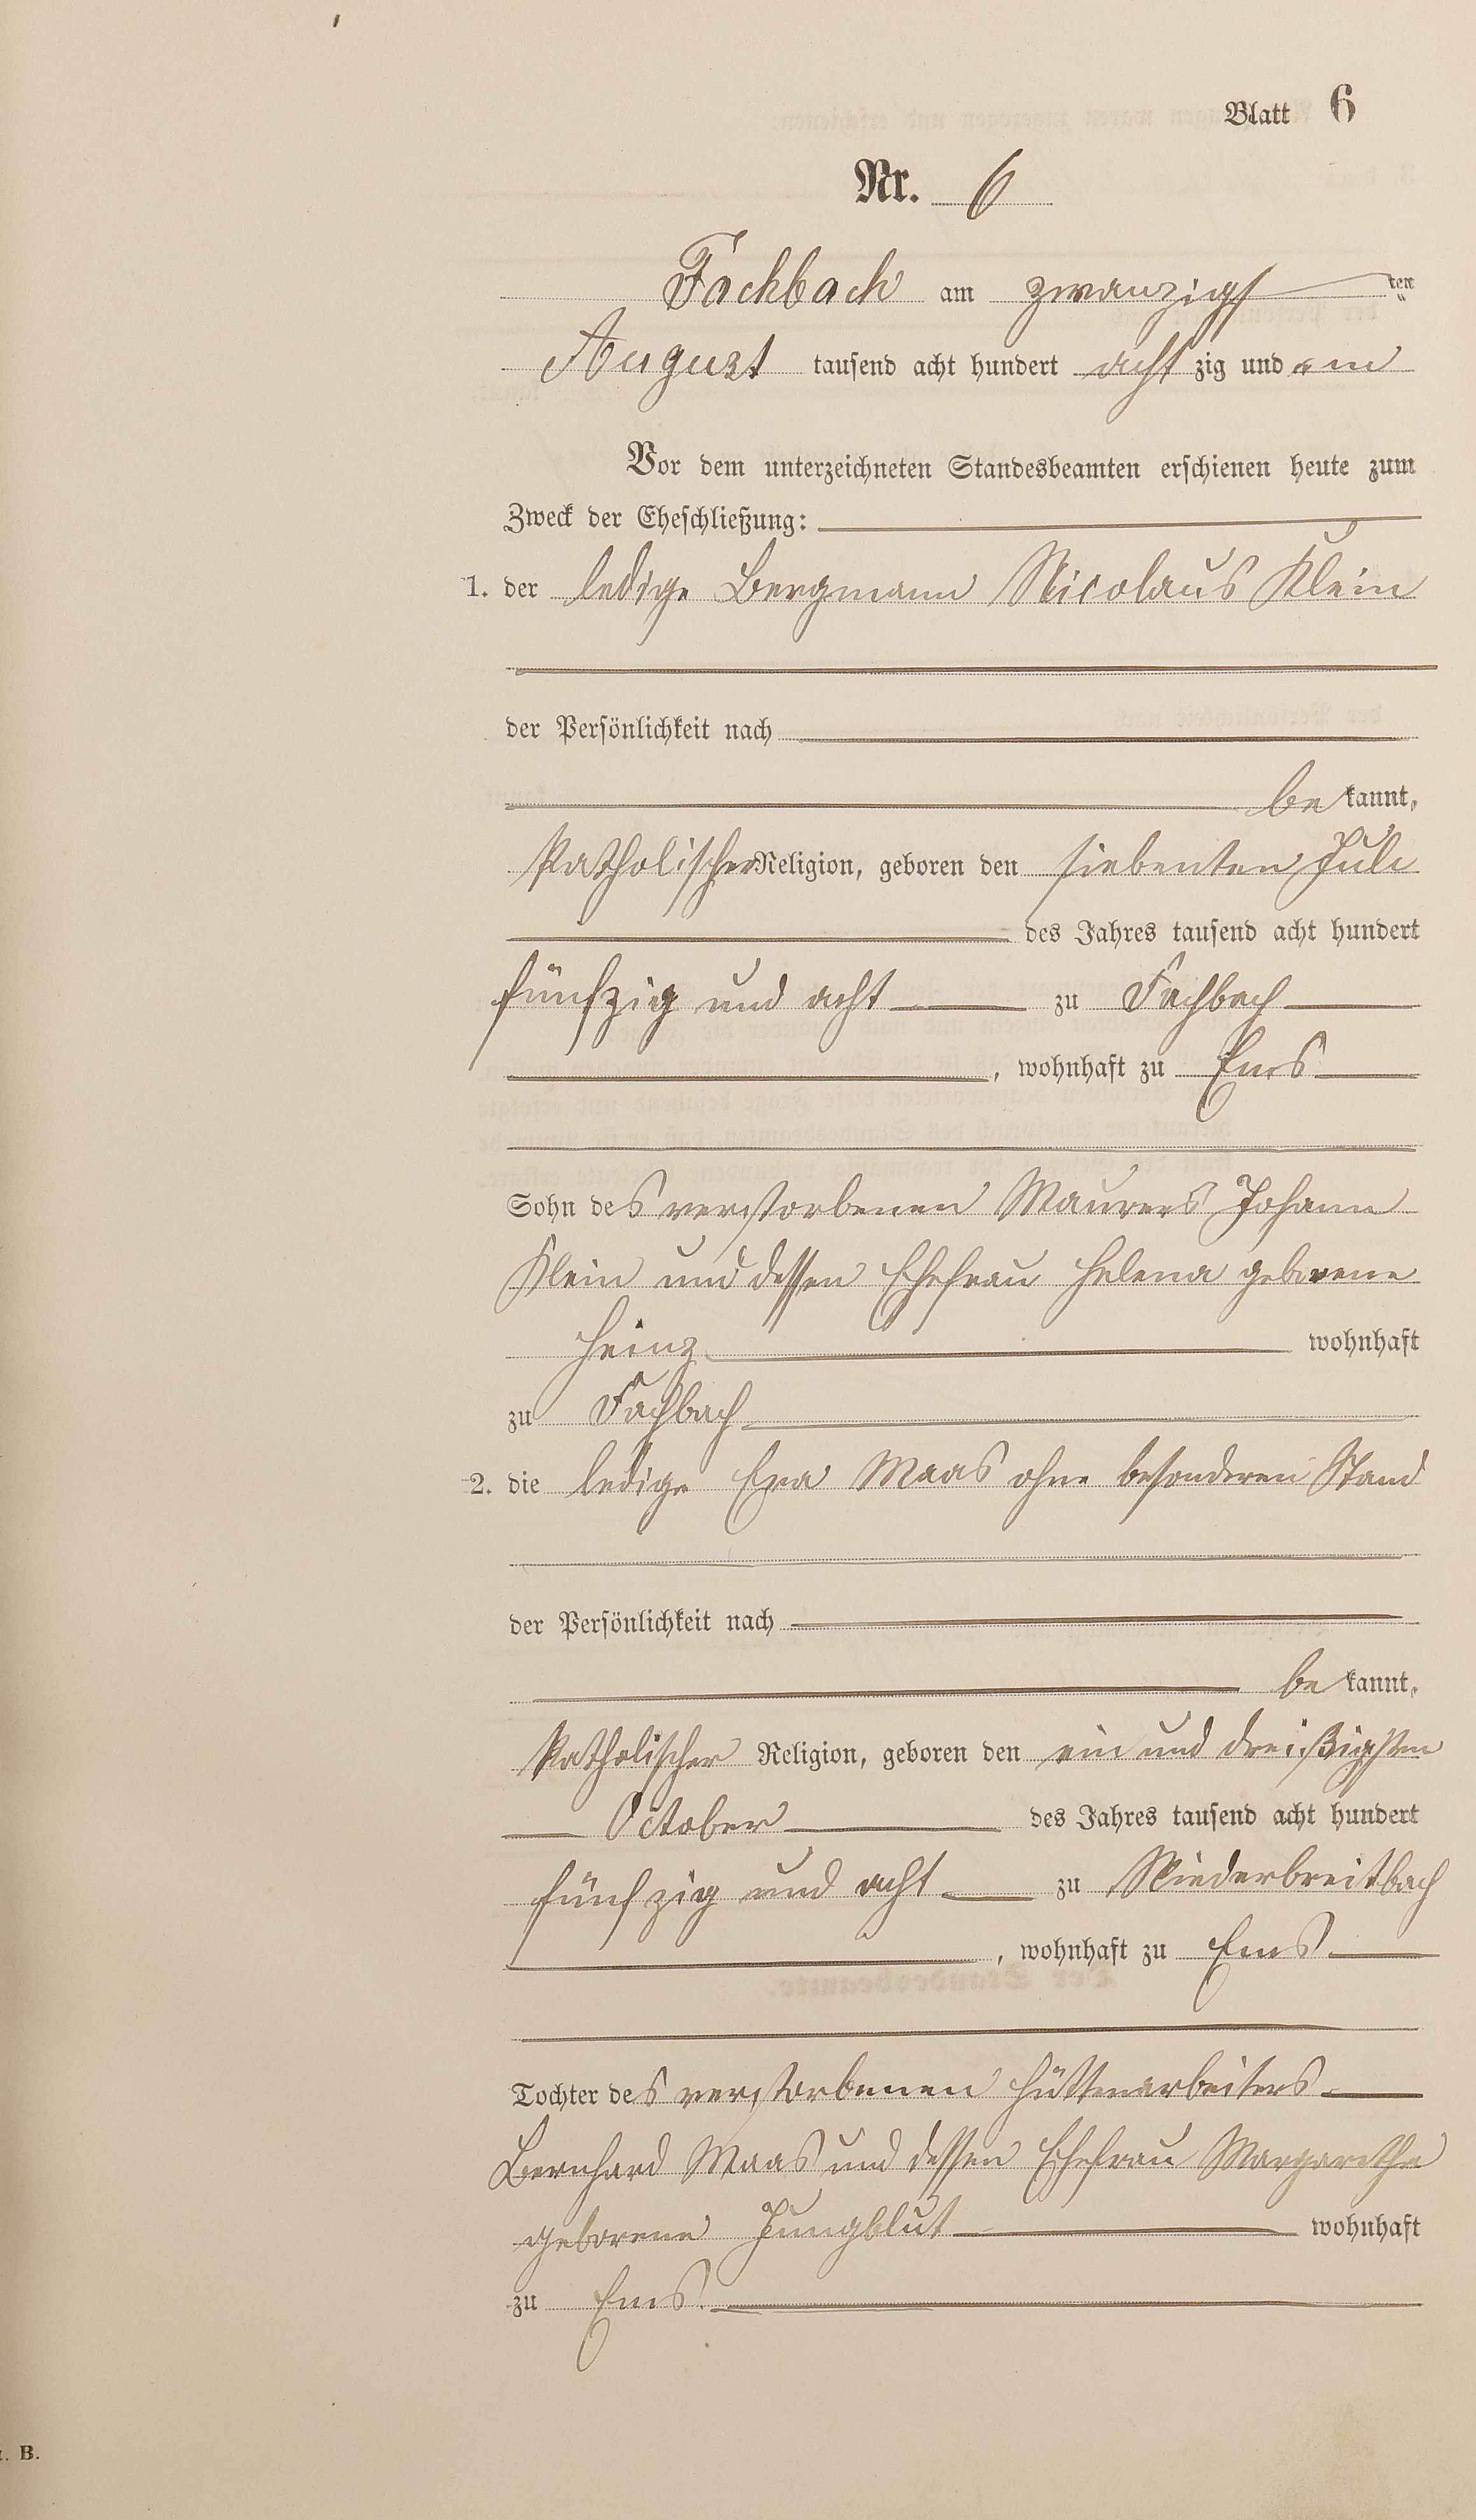 Blatt 6
Nr. 6
Fachbach am zwanzigst ten
August tausend acht hundert acht zig und ein
Vor dem unterzeichneten Standesbeamten erschienen heute zum
Zweck der Eheschließung:
1. der ledige Bergmann Nicolaus Klein
der Persönlichkeit nach
be kannt,
katholischer Religion, geboren den siebenten Juli
des Jahres tausend acht hundert
fünfzig und acht zu Fachbach
, wohnhaft zu Ems
Sohn des verstorbenen Maurers Johann
Klein und dessen Ehefrau Helena geborene
Heinz wohnhaft
zu Fachbach
2. die ledige Eva Maas ohne besonderen Stand
der Persönlichkeit nach
be kannt,
katholischer Religion, geboren den ein und dreißigsten
October des Jahres tausend acht hundert
fünfzig und acht zu Niederbreitbach
, wohnhaft zu Ems
Tochter des verstorbenen Hüttenarbeiters
Bernhard Maas und dessen Ehefrau Margarethe
geborene Jungblut wohnhaft
zu Ems.
. B.